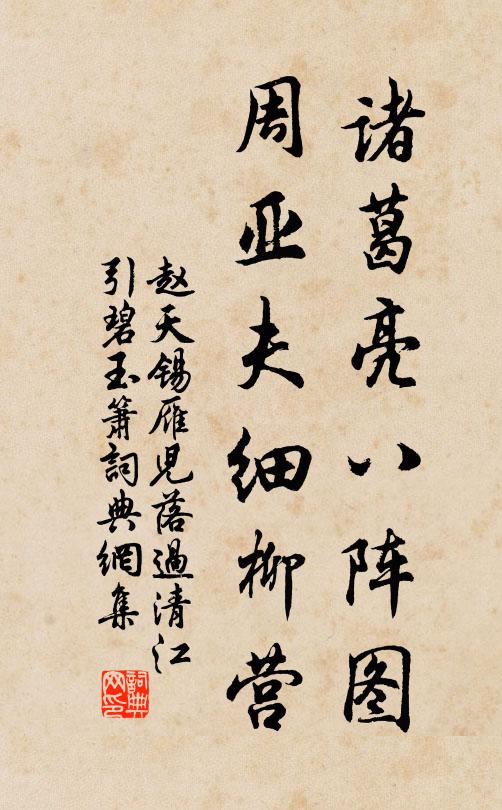 诸葛亮八阵图
周亚夫细柳营
赵天锡雁儿落过清江
引碧玉箫词典網集
詞典
网印